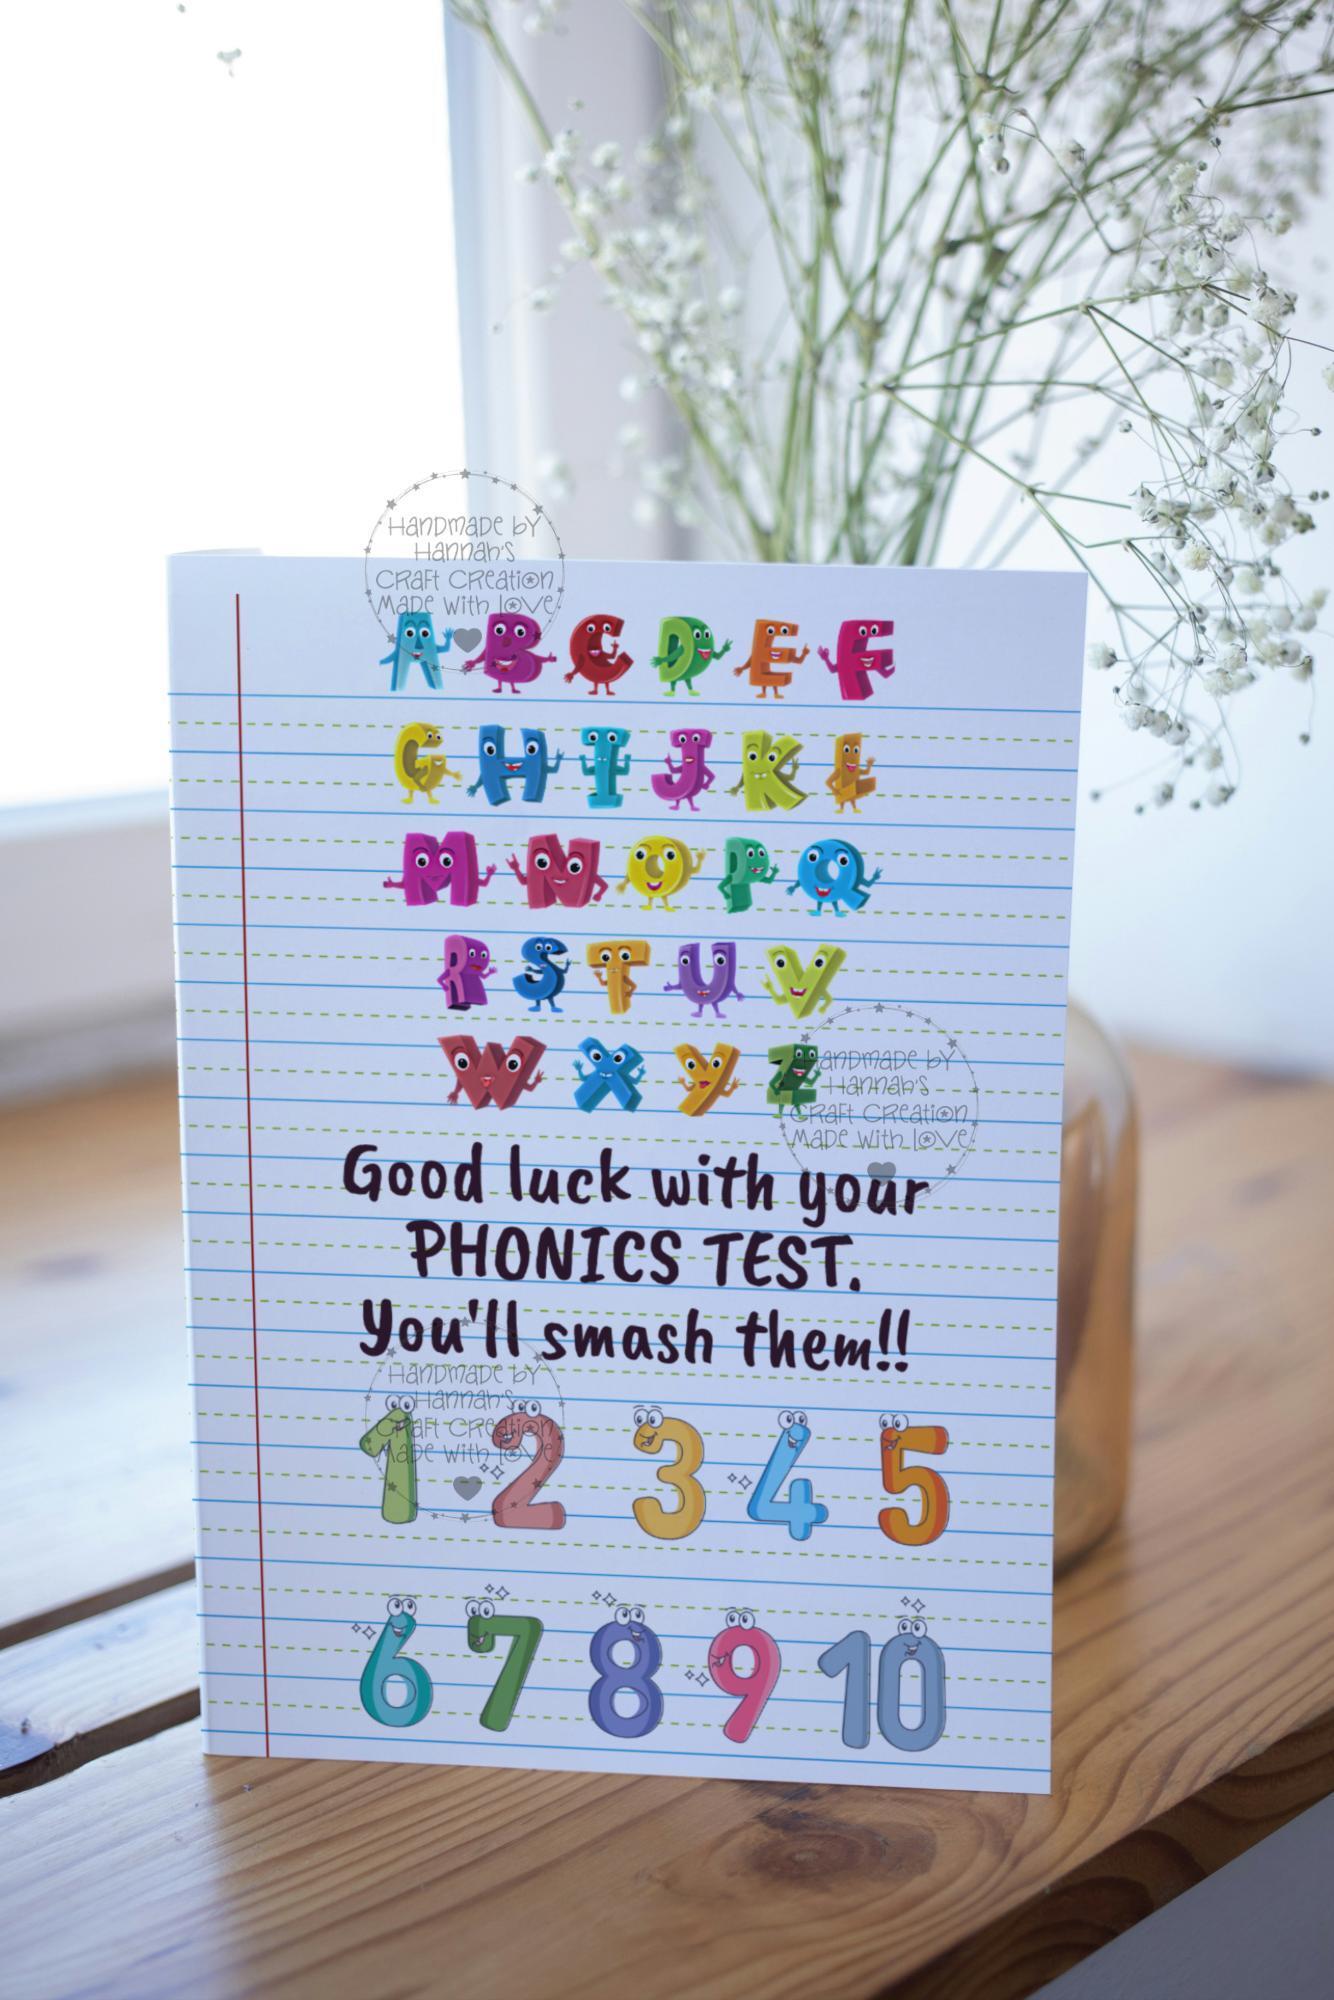 Handmade by
Hannah's
Craft Creation
Made with love
A B C D E F
G H I J K L
M N O P Q
R S T U V
W X Y Z
Handmade by
Hannah's
Craft Creation
Made with love
Good luck with your
PHONICS TEST.
You'll smash them!!
Handmade by
Hannah's
Craft Creation
Made with love
1 2 3 4 5
6 7 8 9 10